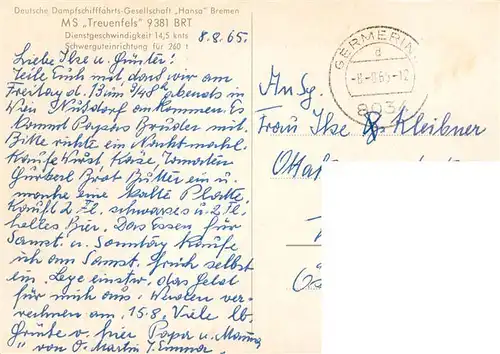 Deutsche Dampfschifffahrts-Gesellschaft „Hansa" Bremen
MS „Treuenfels" 9381 BRT
Dienstgeschwindigkeit 14,5 knts
Schwerguteinrichtung für 260 t
8.8.65.
Liebe Ilse u. Günter!
Teile Euch mit daß wir am
Freitag d. 13 um 9/48h abends in
Wien Nußdorf ankommen. Es
kommt Papas Bruder mit.
Bitte richte ein Nachtmahl.
Kaufe Wurst, Käse, Tomaten
Gurkerl Brot Butter ein u.
mache eine kalte Platte.
Kauft 2 Fl. schwarzes u. 2 Fl.
helles Bier. Das Essen für
Samst. u. Sonntag kaufe
ich am Samst. früh selbst
ein. Lege einstw. das Geld
für mich aus. Werden ver-
rechnen am 15.8. Viele lb.
Grüße v. hier Papa u. Mama
" von O. Martin T. Emma
GERMERIN
d
-8.-8.65-12
8034
An Sg.
Frau Ilse Kleibner